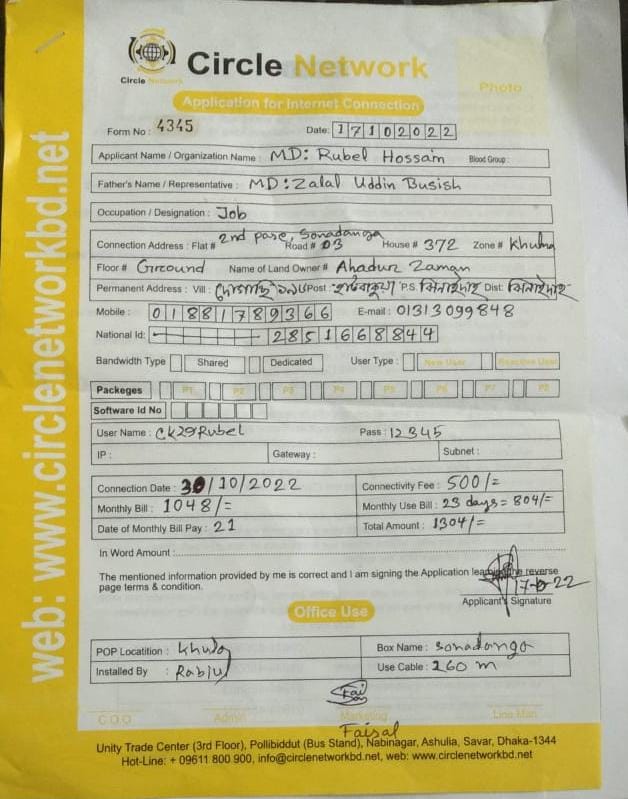 web: www.circlenetworkbd.net
Circle Network
Circle Network
Photo
Application for Internet Connection
Form No : 4345 Date: 17102022
Applicant Name / Organization Name : MD: Rubel Hossain Blood Group :
Father's Name / Representative : MD: Zalal Uddin Busish
Occupation / Designation : Job
Connection Address : Flat # 2nd pase, Sonadanga Road # 03 House # 372 Zone # Khulna
Floor # Ground Name of Land Owner # Ahadur Zaman
Permanent Address : Vill : Post : P.S. ঝিনাইদাহ Dist: ঝিনাইদাহ
Mobile : 01881789366 E-mail : 01313099848
National Id: 2851668844
Bandwidth Type Shared Dedicated User Type : New User Reactive User
Packeges P1 P2 P3 P4 P5 P6 P7 P8
Software Id No
User Name : CK29Rubel Pass : 12345
IP : Gateway : Subnet :
Connection Date : 30/10/2022 Connectivity Fee : 500/=
Monthly Bill : 1048/= Monthly Use Bill : 23 days = 804/=
Date of Monthly Bill Pay : 21 Total Amount : 1304/=
In Word Amount :
The mentioned information provided by me is correct and I am signing the Application the reverse
page terms & condition.
Applicant's Signature
Office Use
POP Locatition : Khulna Box Name : Sonadanga
Installed By : Rabiul Use Cable : 260 m
C.O.O Admin Marketing Line Man
Faisal
Unity Trade Center (3rd Floor), Pollibiddut (Bus Stand), Nabinagar, Ashulia, Savar, Dhaka-1344
Hot-Line: + 09611 800 900, info@circlenetworkbd.net, web: www.circlenetworkbd.net